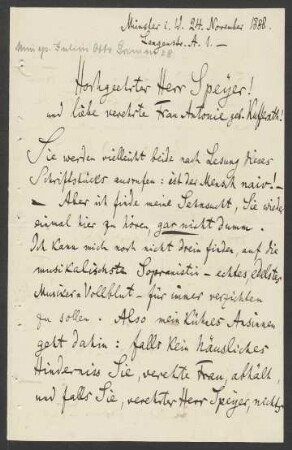 Münster i. W. 24. November 1888.
Langenstr. A. 1. —
Hochgeehrter Herr Speyer!
und liebe verehrte Frau Antonie geb. Kufferath!
Sie werden vielleicht beide nach Lesung dieses
Schriftstücks ausrufen: ist der Mensch naiv! —
— Aber ich finde meine Sehnsucht, Sie wieder
einmal hier zu hören, gar nicht dumm.
Ich kann mich noch nicht drein finden, auf die
musikalischste Sopranistin — echtes, edelstes
Musiker-Vollblut — für immer verzichten
zu sollen. Also mein kühnes Ansinnen
geht dahin: falls kein häusliches
Hinderniss Sie, verehrte Frau, abhält,
und falls Sie, verehrter Herr Speyer, nichts